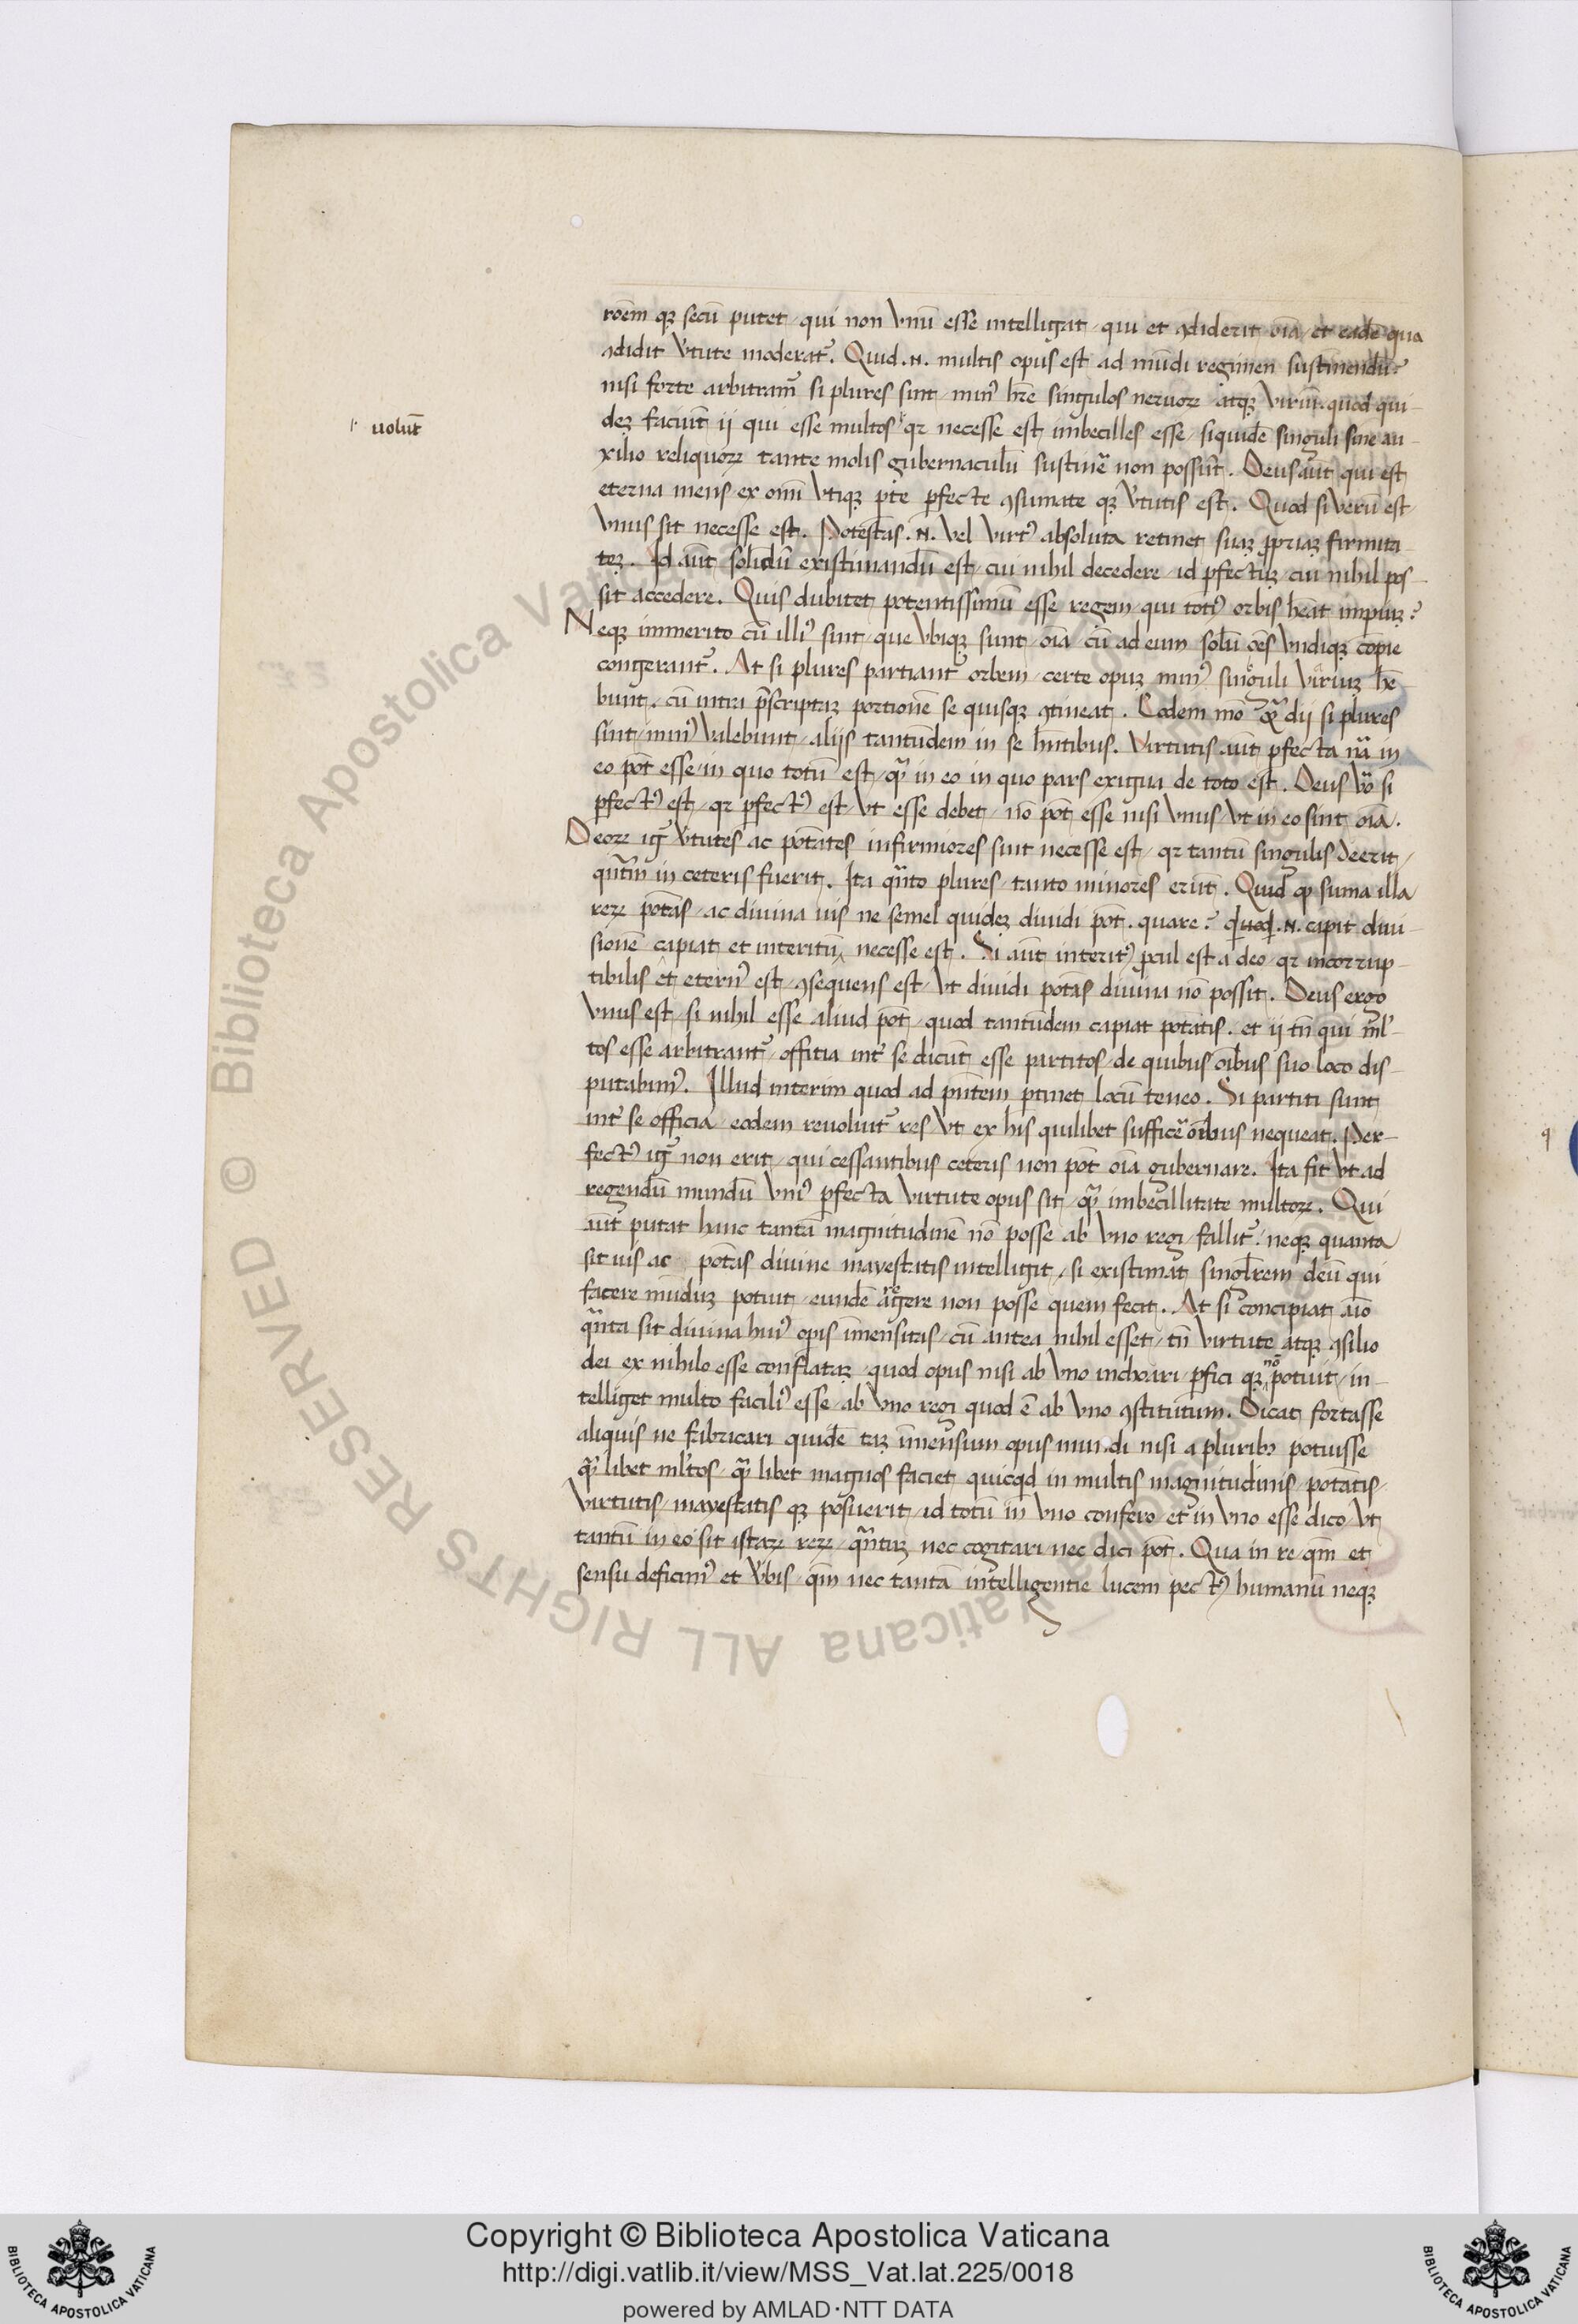 roēm qꝫ secū putet / qui non vnū esse intelligat / qui et ꝯdiderit oīa / et eadē qua
ꝯdidit v̓tute moderat᷑. Quid .N. multis opus est ad mūdi regimen sustinendū?
nisi forte arbitram᷑ si plures sint / minꝰ hr̄e singulos neruoꝝ atqꝫ viriū. quod qui-
deꝫ faciūt ij qui esse multos qꝛ necesse est imbecilles esse / siquidē singuli sine au-
uolūt
xilio reliquoꝝ tante molis gubernaculū sustinē non possūt. Deus aūt qui est
eterna mens / ex omī vtiqꝫ pte ꝑfecte ꝯsumate qꝫ v̓tutis est. Quod si verū est
vnus sit necesse est. Potestas .N. vel virtꝰ absoluta retinet suaꝫ ꝓpriaꝫ firmita-
teꝫ. Id aūt solidū existimandū est / cui nihil decedere / id ꝑfectuꝫ / cui nihil pos-
sit accedere. Quis dubitet potentissimū esse regem / qui totiꝰ orbis hēat impiuꝫ?
Neqꝫ immerito cū illiꝰ sint / que vbiqꝫ sunt / oīa / cū ad eum solū oēs vndiqꝫ copie
congerant᷑. At si plures partiant᷑ orbem / certe opuꝫ minꝰ singuli viriuꝫ hē-
bunt / cū intra p̄scriptaꝫ portionē se quisqꝫ ꝯtineat. Eodem mō dij si plures
sint / minꝰ valebunt / alijs tantūdem in se hn̄tibus. Virtutis aūt ꝑfecta nā in
eo pōt esse / in quo totū est / qͣ in eo in quo pars exigua de toto est. Deus vͦ si
ꝑfectꝰ est / qꝛ ꝑfectꝰ est / vt esse debet / nō pōt esse nisi vnus / vt in eo sint oīa.
Deoꝝ ig᷑ v̓tutes ac potātes infirmiores sint necesse est / qꝛ tantū singulis deerit /
qn̄tū in ceteris fuerit. Ita qn̄to plures / tanto minores erūt. Quid ꝙ suma illa
reꝝ potās / ac diuina uis ne semel quideꝫ diuidi pōt. quare? quod .N. capit diui-
sionē capiat et interitū necesse est. Si aūt interitꝰ ꝓcul est a deo / qꝛ incorrup-
tibilis et eternꝰ est / ꝯsequens est / vt diuidi potās diuina nō possit. Deus ergo
vnus est / si nihil esse aliud pōt / quod tantūdem capiat potātis. et ij tn̄ qui ml̓-
tos esse arbitrant᷑ / offitia int̓ se dicūt esse partitos / de quibus oībus suo loco dis-
putabimꝰ. Illud interim quod ad pn̄tem ꝑtinet locū teneo. Si partiti sunt
int̓ se officia / eodem reuoluit᷑ res / vt ex his quilibet sufficē oībus nequeat. Per-
fectꝰ ig᷑ non erit / qui cessantibus ceteris non pōt oīa gubernare. Ita fit vt ad
regendū mundū vniꝰ ꝑfecta virtute opus sit / qͣ imbecillitate multoꝝ. Qui
aūt putat hanc tantā magnitudinē nō posse ab vno regi / fallit᷑. neqꝫ quanta
sit uis ac potās diuine mayestatis intelligit / si existimat singlarem deū qui
facere mūduꝫ potuit / eundē regere non posse quem fecit. At si concipiat aīo
qn̄ta sit diuina huiꝰ opis īmensitas / cū antea nihil esset / tn̄ virtute atqꝫ ꝯsilio
dei ex nihilo esse conflataꝫ / quod opus nisi ab vno inchoari / ꝑfici qꝫ nō potuit / in-
telliget multo faciliꝰ esse / ab vno regi quod ē ab vno ꝯstitutum. Dicat fortasse
aliquis ne fabricari quidē taꝫ īmensum opus mundi nisi a pluribꝫ potuisse
qͣ libet ml̓tos / qͣ libet magnos faciet quicqd in multis magnitudinis / potātis /
virtutis / mayestatis qꝫ posuerit / id totū in vno confero / et in vno esse dico / vt
tantū in eo sit istaꝝ reꝝ / qn̄tuꝫ nec cogitari nec dici pōt. Qua in re qm̄ et
sensu deficimꝰ et v̓bis / qm̄ nec tantā intelligentie lucem pectꝰ humanū neqꝫ
Copyright © Biblioteca Apostolica Vaticana
http://digi.vatlib.it/view/MSS_Vat.lat.225/0018
powered by AMLAD·NTT DATA
© Biblioteca Apostolica Vaticana ALL RIGHTS RESERVED
BIBLIOTECA APOSTOLICA VATICANA
BIBLIOTECA APOSTOLICA VATICANA